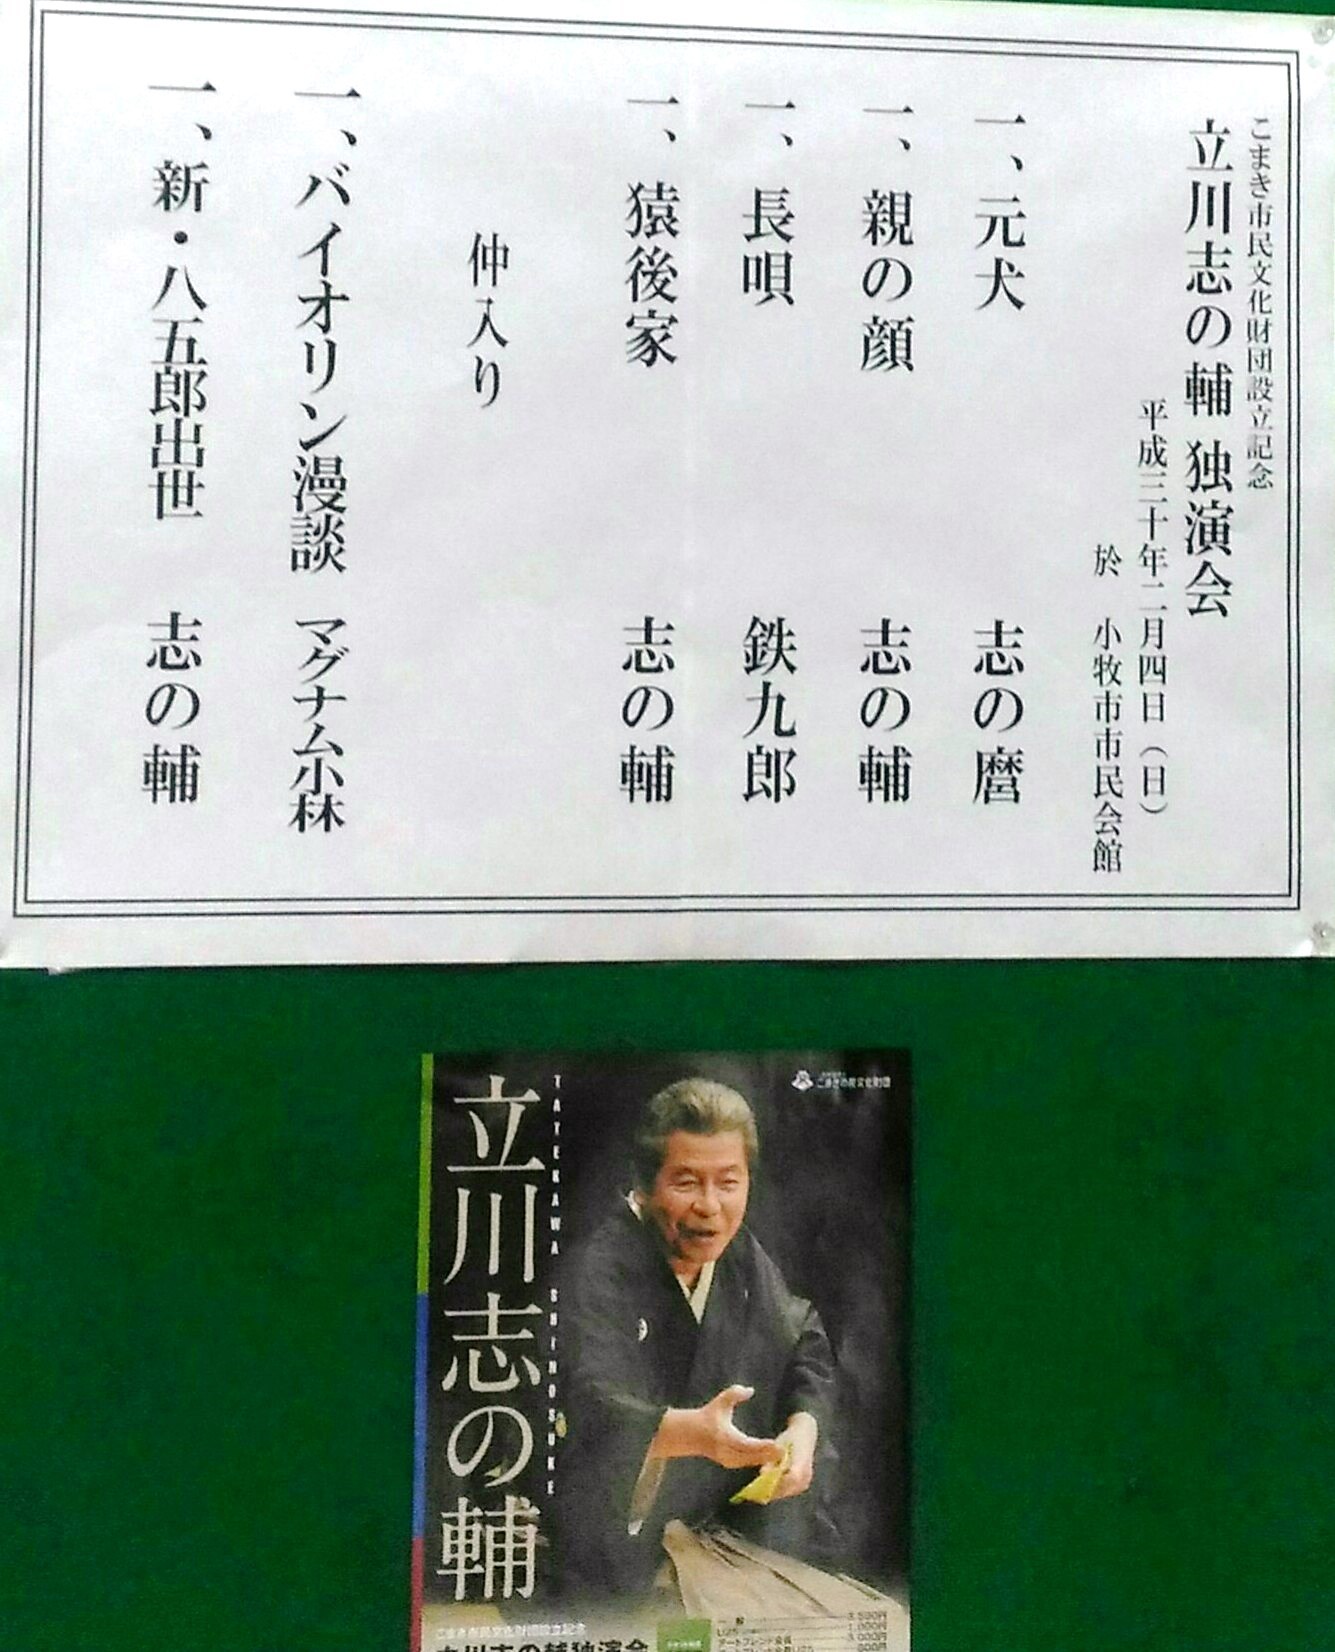 こまき市民文化財団設立記念
立川志の輔 独演会
平成三十年二月四日（日）
於 小牧市市民会館
一、元犬 志の麿
一、親の顔 志の輔
一、長唄 鉄九郎
一、猿後家 志の輔
仲入り
一、バイオリン漫談 マグナム小林
一、新・八五郎出世 志の輔
こまき市民文化財団
TATEKAWA SHINOSUKE
立川志の輔
こまき市民文化財団設立記念
立川志の輔独演会
一般
U25
アートフレンド会員
3,000円